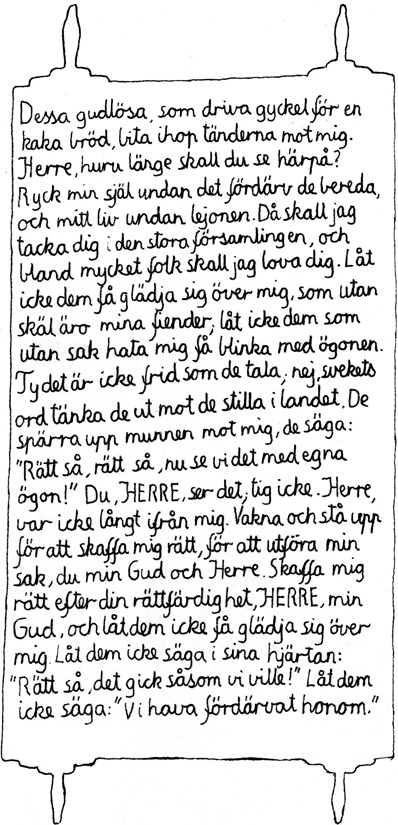 Dessa gudlösa, som driva gyckel för en
kaka bröd, bita ihop tänderna mot mig.
Herre, huru länge skall du se härpå?
Ryck min själ undan det fördärv de bereda,
och mitt liv undan lejonen. Då skall jag
tacka dig i den stora församlingen, och
bland mycket folk skall jag lova dig. Låt
icke dem få glädja sig över mig, som utan
skäl äro mina fiender; låt icke dem som
utan sak hata mig få blinka med ögonen.
Ty det är icke frid som de tala; nej, svekets
ord tänka de ut mot de stilla i landet. De
spärra upp munnen mot mig, de säga:
"Rätt så, rätt så, nu se vi det med egna
ögon!" Du, HERRE, ser det; tig icke. Herre,
var icke långt ifrån mig. Vakna och stå upp
för att skaffa mig rätt, för att utföra min
sak, du min Gud och Herre. Skaffa mig
rätt efter din rättfärdighet, HERRE, min
Gud, och låt dem icke få glädja sig över
mig. Låt dem icke säga i sina hjärtan:
"Rätt så, det gick såsom vi ville!" Låt dem
icke säga: "Vi hava fördärvat honom."